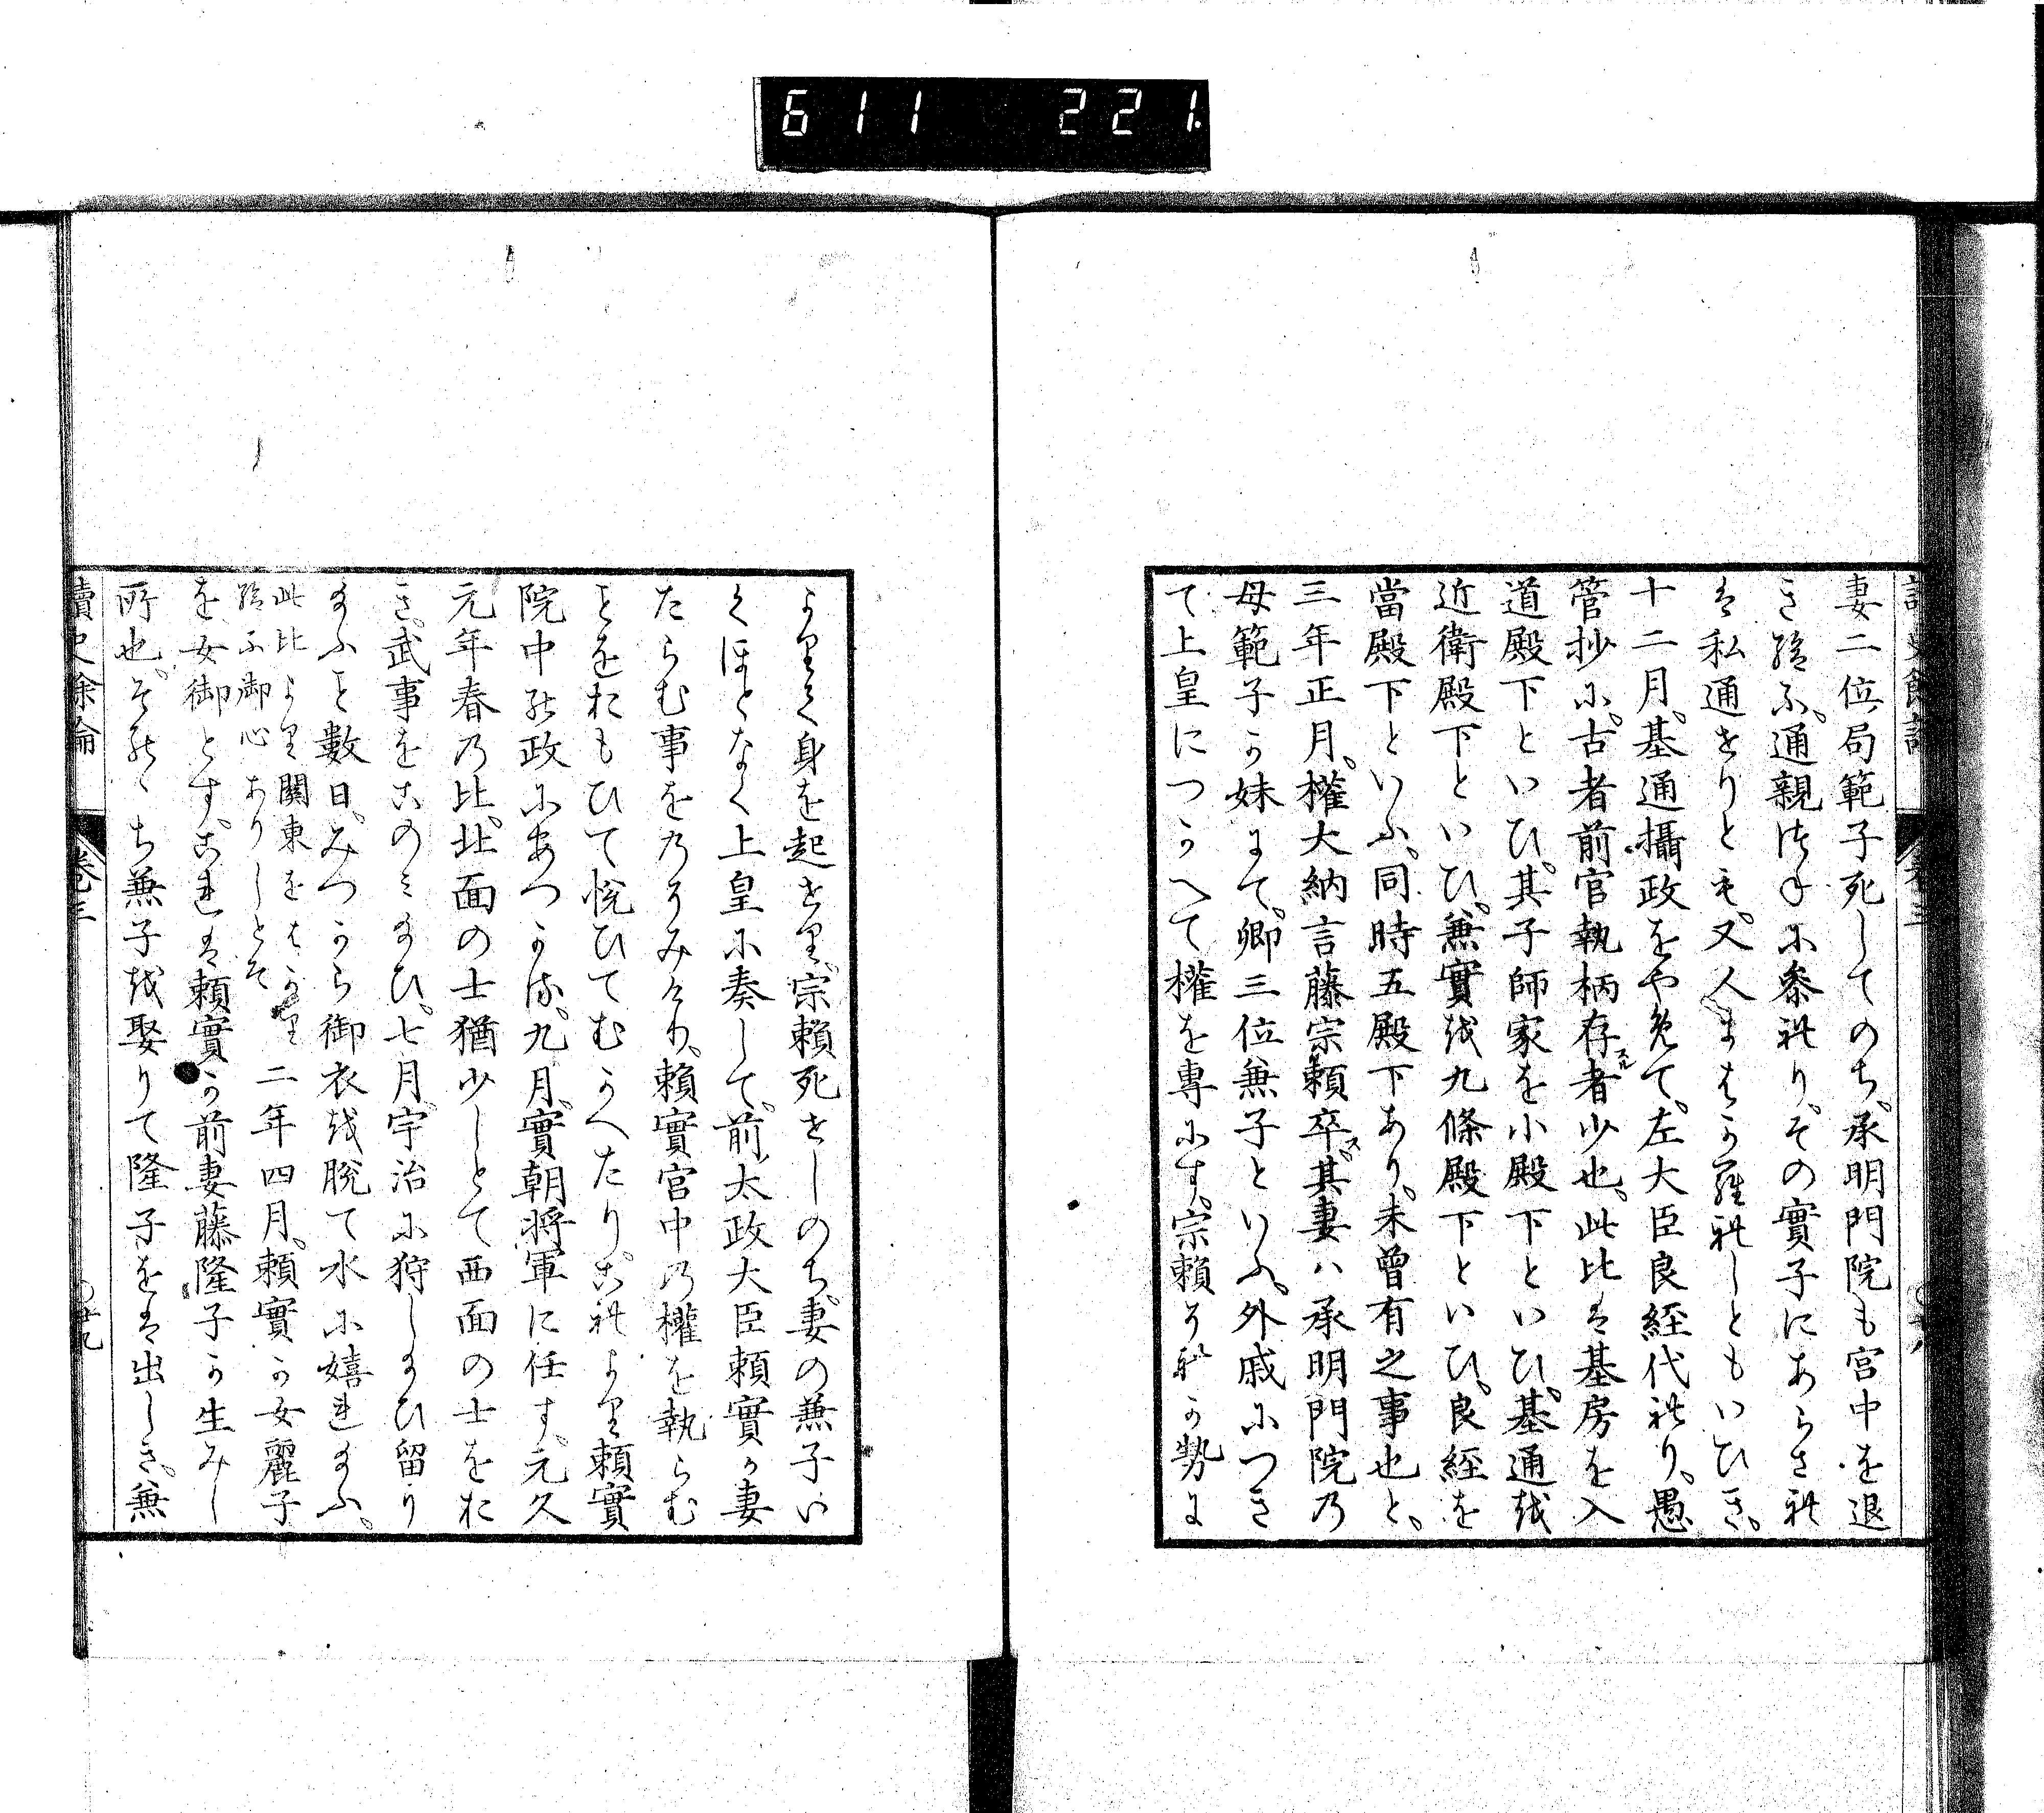 611 221
妻二位局範子死してのち、承明門院も宮中を退
き給ふ。通親つ子に参れり。その實子にあらされ
は私通せりとも、又人まはる羅れしともいひき。
十二月。基通攝政をやめて、左大臣良経代れり。愚
管抄に。古者前官執柄存スル者少也。此比は基房を入
道殿下といひ。其子師家を小殿下といひ。基通を
近衛殿下といひ。兼實を九條殿下といひ。良経を
當殿下といふ。同時五殿下あり。未曾有之事也と。
三年正月。權大納言藤宗頼卒ス。其妻ハ承明門院の
母範子か妹にて。卿三位兼子といふ。外戚につき
て上皇につかへて權を專にす。宗頼それか勢に
よりて身を起せり。宗頼死せしのち。妻の兼子い
くほとなく上皇に奏して。前太政大臣頼實か妻
たらむ事をのそみけり。頼實宮中の權を執らむ
ことをおもひて悦ひてむかへたり。これより頼實
院中の政にあつかる。九月。實朝将軍に任す。元久
元年春の比。北面の士猶少しとて西面の士をお
き。武事をこのミ給ひ。七月。宇治に狩し給ひ留り
給ふこと數日。みつから御衣を脱て水に嬉れ給ふ。
此比より關東をはかり
給ふ御心ありしとそ
二年四月。頼實か女麗子
を女御とす。これは頼實か前妻藤隆子か生みし
所也。そのゝち兼子を娶りて隆子をは出しき。兼
讀史餘論 卷三 廿九